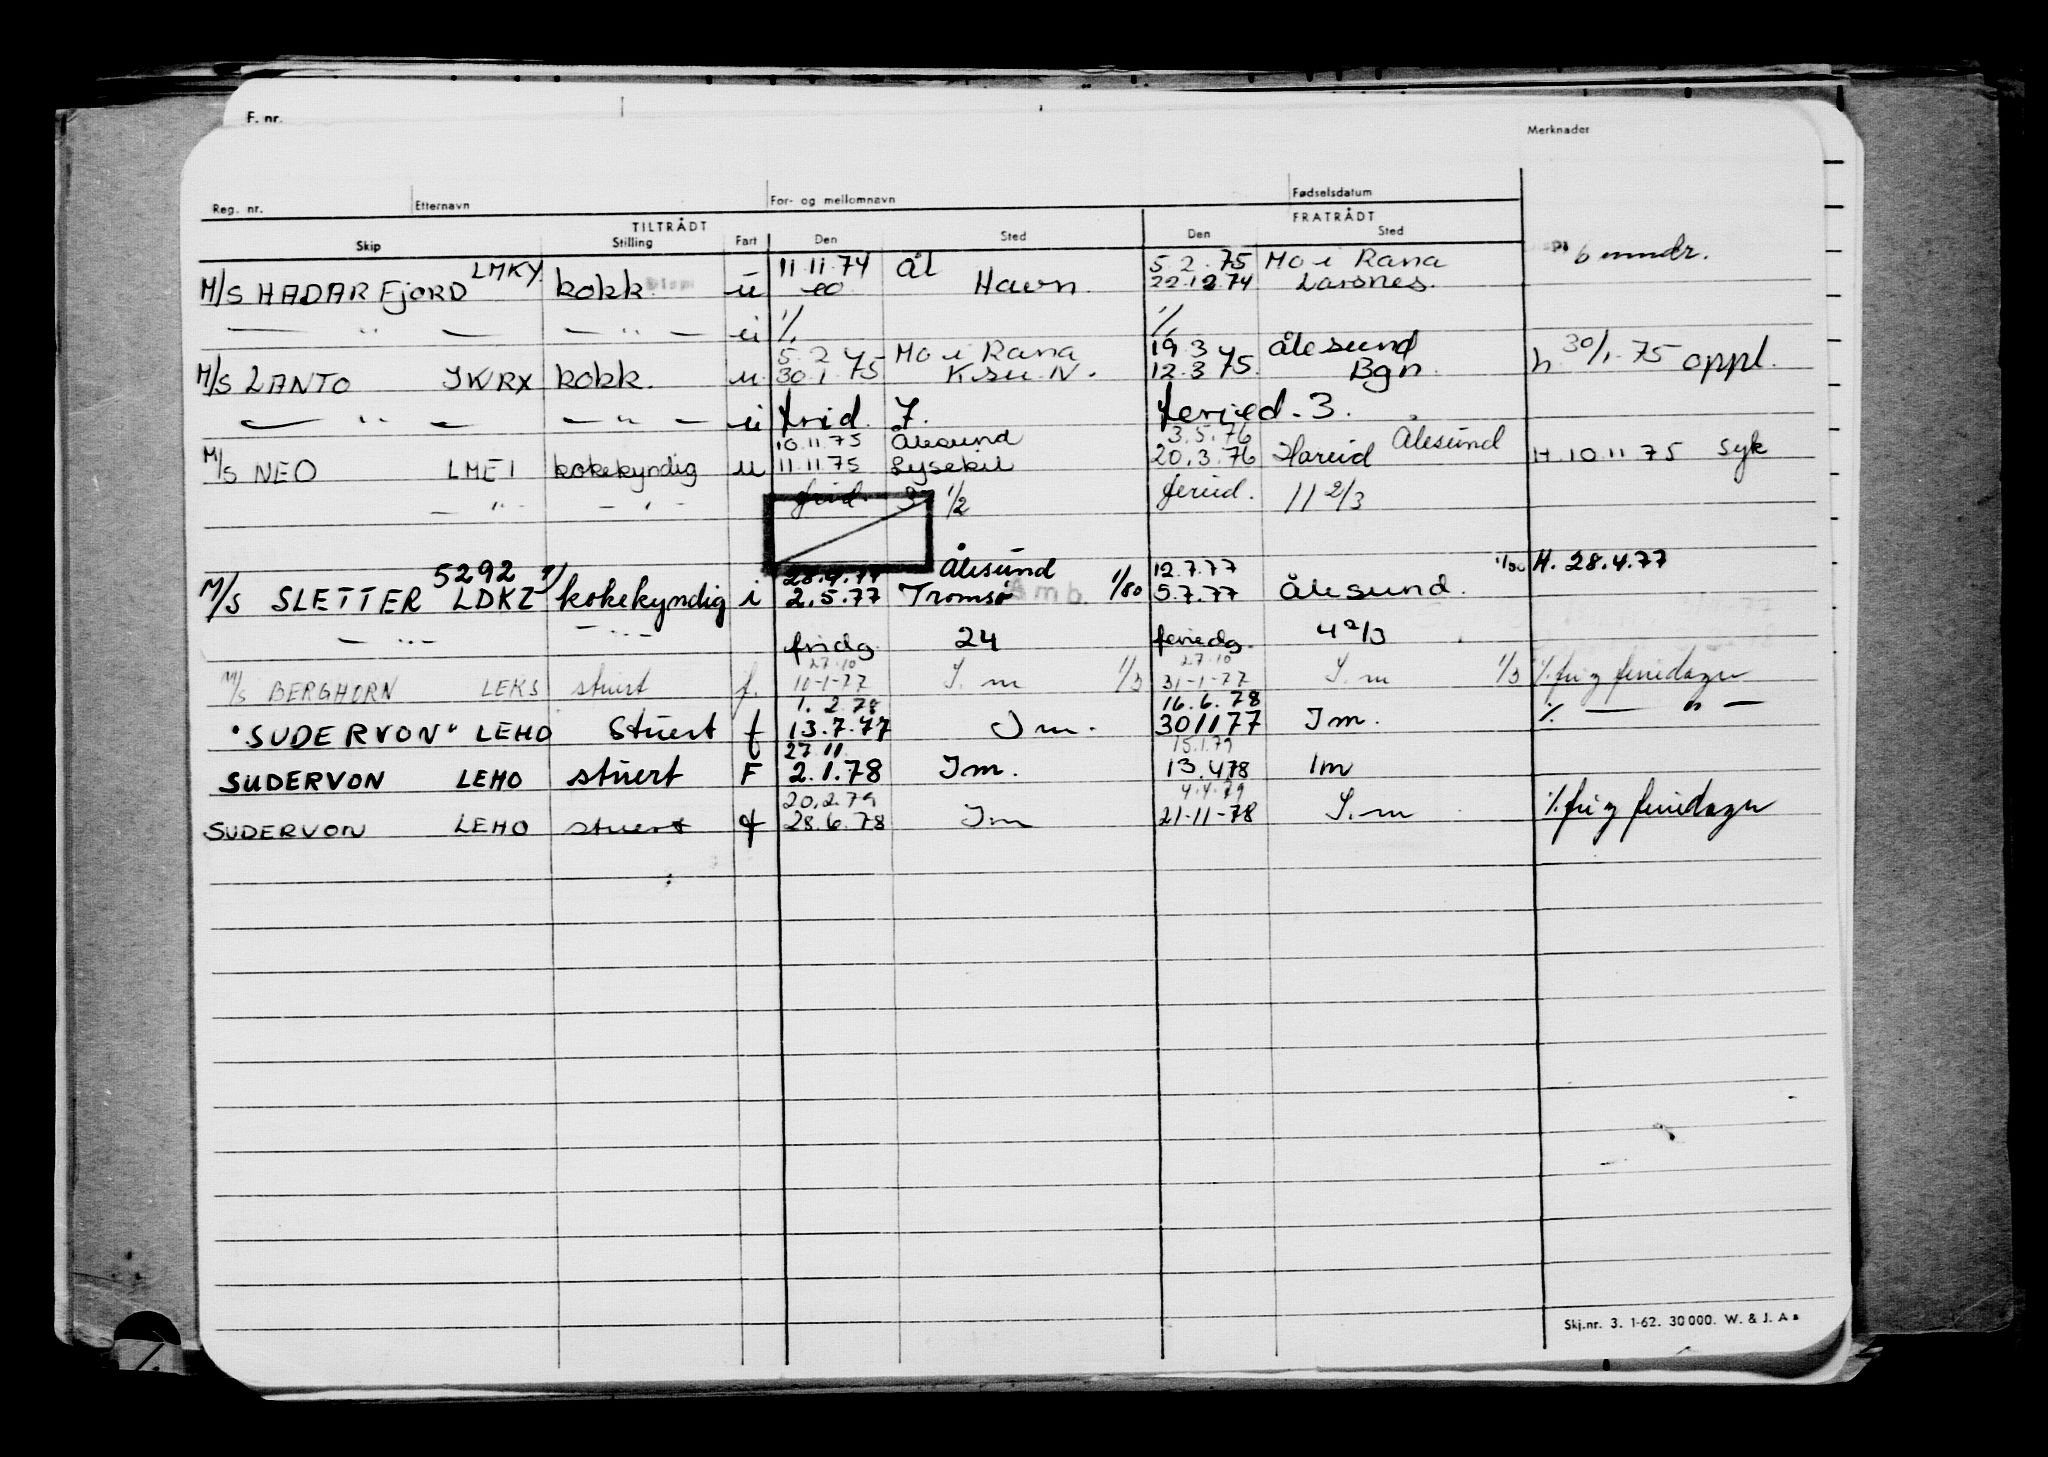 F. nr.
Merknader
Reg. nr. Etternavn For- og mellomnavn Fødselsdatum
TILTRÅDT FRATRÅDT
Skip Stilling Fart Den Sted Den Sted
LMKY 11.11.74 Ål 5.2.75 Mo i Rana 6 mndr.
M/S HADARFJORD kokk u Havn 22.12.74 Larsnes.
— " — — " — u % %
5.2.75 Mo i Rana 19.3.75 Ålesund
M/S LANTO JWRX kokk. u 30.1.75 Ksu N. 12.3.75. Bgn. h 30/1.75 oppl.
— " — — " — u frid. 7. feried. 3.
10.11.75 Ålesund 3.5.76 Ålesund
M/S NEO LMEI kokekyndig u 11.11.75 Lysekil 20.3.76 Hareid H 10 11 75 syk
— " — — " — frid. 1/2 feried. 11 2/3
5292 28.4.77 Ålesund 12.7.77 1/80 H. 28.4.77
M/S SLETTER LDKZ kokekyndig i 2.5.77 Tromsø Amb. 1/80 5.7.77 Ålesund.
— " — — " — fridg. 24 feriedg. 4 2/3
27.10 27.10
M/S BERGHORN LEKS stuert f. 10-1-77 I. m 1/3 31-1-77 I. m 1/3 % fri og feriedager
1.2.78 16.6.78
"SUDERVON" LEHO Stuert f 13.7.77 Im. 301177 Im. % — " —
27.11. 15.1.79
SUDERVON LEHO stuert F 2.1.78 Im. 13.478 Im
20.2.79 4.4.79
SUDERVON LEHO stuert f 28.6.78 Im 21-11-78 I. m % fri og feriedager
Skj.nr. 3. 1-62. 30 000. W. & J. A s